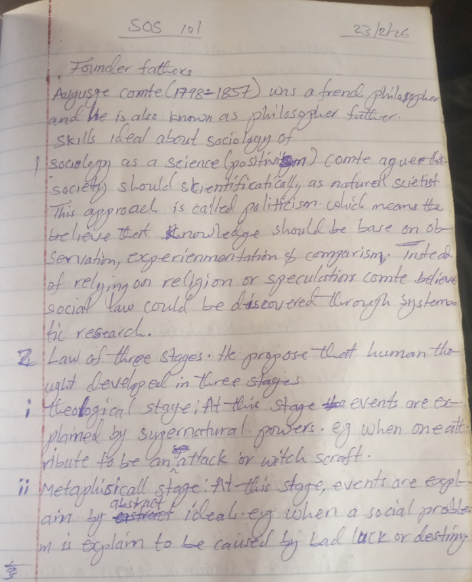 SOS 101 23/2/26
Founder fathers
Auguste comte (1798-1857) was a frend philosopher
and he is also known as philosopher father.
Skills ideal about sociology of
1 sociology as a science (positivism) comte aguee
society should scientifically, as natural scietist
This approach is called politicism which means the
believe that knowledge should be base on ob-
servation, experienmentation & comparism. Instead
of relying on religion or speculation comte believe
social law could be discovered through systema
tic research.
2 Law of three stages. He propose that human tho-
ught developed in three stages
i Theological stage; At this stage events are ex-
plained by supernatural powers. eg when one att
ribute to be an attack or witch scraft.
ii Metaphisicall stage: At this stage, events are expl-
ain by abstract ideals eg when a social proble
m is explain to be caused by bad luck or destiny